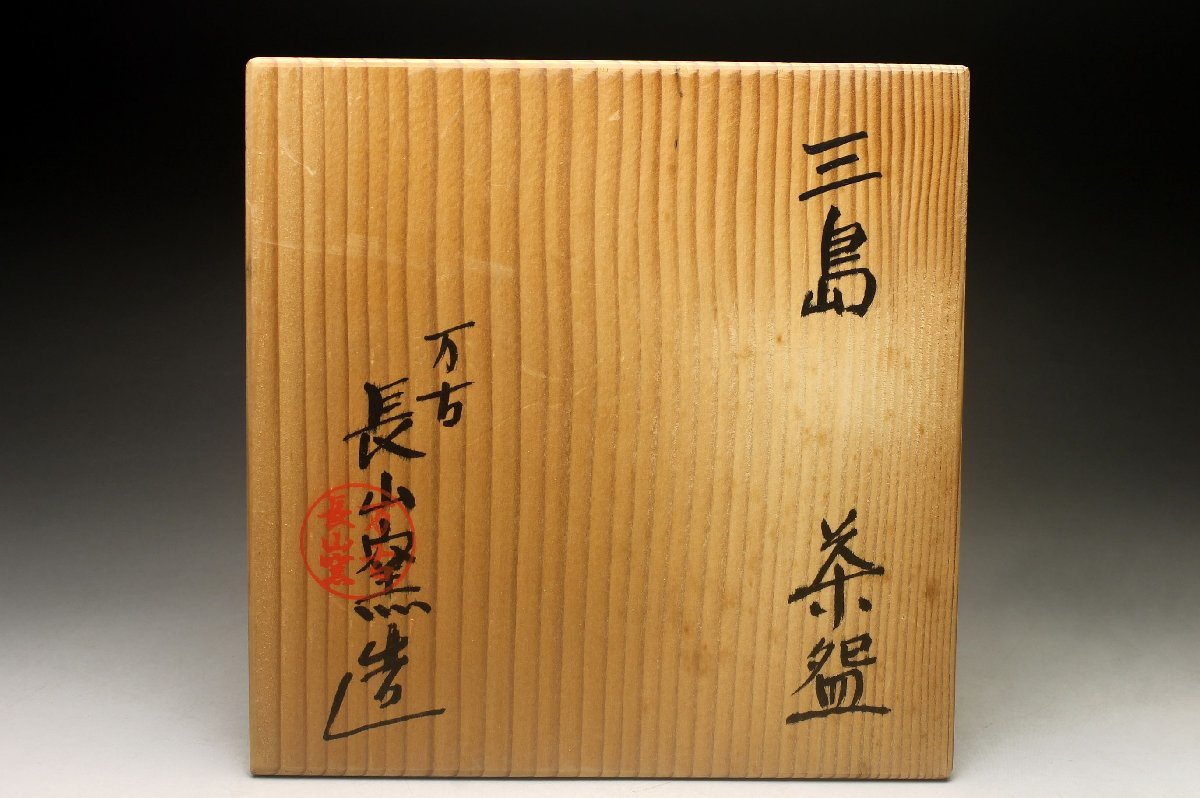 三島 茶盌
万古
長山窯造
万古
長山窯